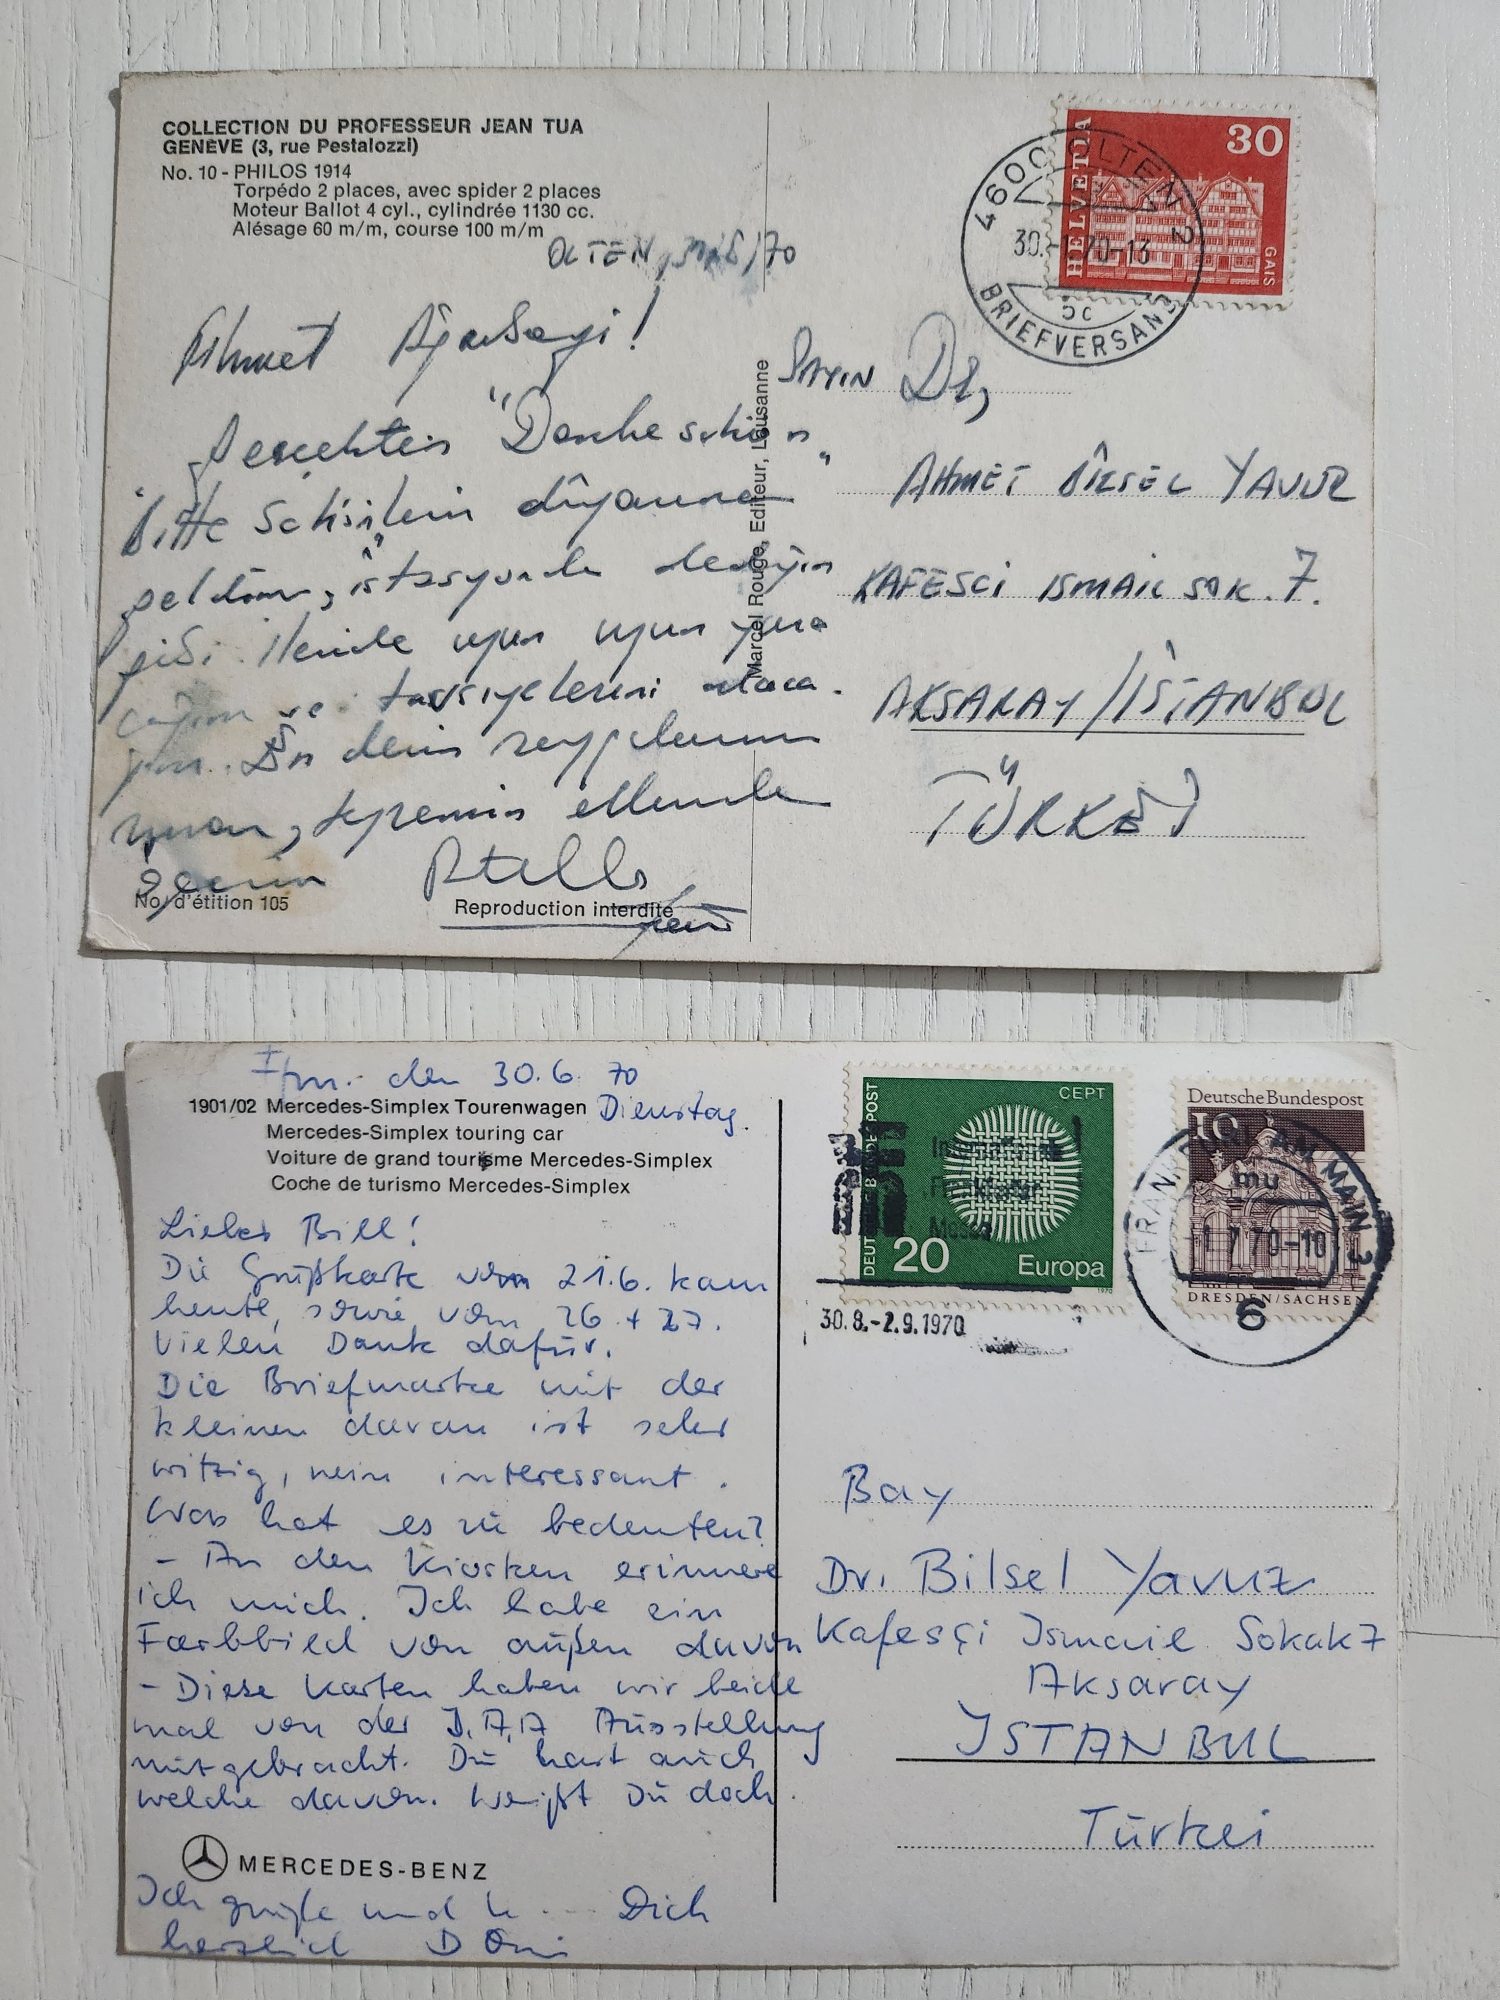 COLLECTION DU PROFESSEUR JEAN TUA
GENÈVE (3, rue Pestalozzi)
No. 10 - PHILOS 1914
Torpédo 2 places, avec spider 2 places
Moteur Ballot 4 cyl., cylindrée 1130 cc.
Alésage 60 m/m, course 100 m/m
OLTEN, /70
Ahmet Ağabeyi!
Gerçekten "Dankeschön
Bitte schön"lerin dünyasına
geldim, istasyonda dediğin
gibi. İleride uzun uzun yaza
cağım ve tavsiyelerini alaca
ğım. Son derin saygılarımı
sunar, ellerinde
Marcel Rouge, Editeur, Lausanne
No. d'étition 105
Reproduction interdite
HELVETIA
30
GAIS
4600 OLTEN 2
30.-1.70-13
BRIEFVERSAND
SAYIN Dr,
AHMET BİLSEL YAVUZ
KAFESCİ ISMAIL SOK. 7.
AKSARAY/İSTANBUL
TÜRKEİ
den 30.6.70
Dienstag.
1901/02 Mercedes-Simplex Tourenwagen
Mercedes-Simplex touring car
Voiture de grand tourisme Mercedes-Simplex
Coche de turismo Mercedes-Simplex
Lieber Bill!
Die Grußkarte vom 21.6. kam
heute, sowie vom 26 + 27.
Vielen Dank dafür.
Die Briefmarke mit der
kleinen daran ist sehr
witzig, nein interessant.
Was hat es zu bedeuten?
- An den Kiosken erinnere
ich mich. Ich habe ein
Farbbild von außen davon
- Diese Karten haben wir beide
mal von der I.A.A Ausstellung
mitgebracht. Du hast auch
welche davon. Weißt Du doch.
MERCEDES-BENZ
Ich grüße und k... Dich
herzlich
DEUTSCHE BUNDESPOST
CEPT
20
Europa
1970
Internationale
Frankfurter
Messe
30.8.-2.9.1970
Deutsche Bundespost
10
DRESDEN/SACHSEN
FRANKFURT AM MAIN 2
mu
-1.7.70-10
6
Bay
Dr. Bilsel Yavuz
Kafesçi Ismail Sokak 7
Aksaray
ISTANBUL
Türkei